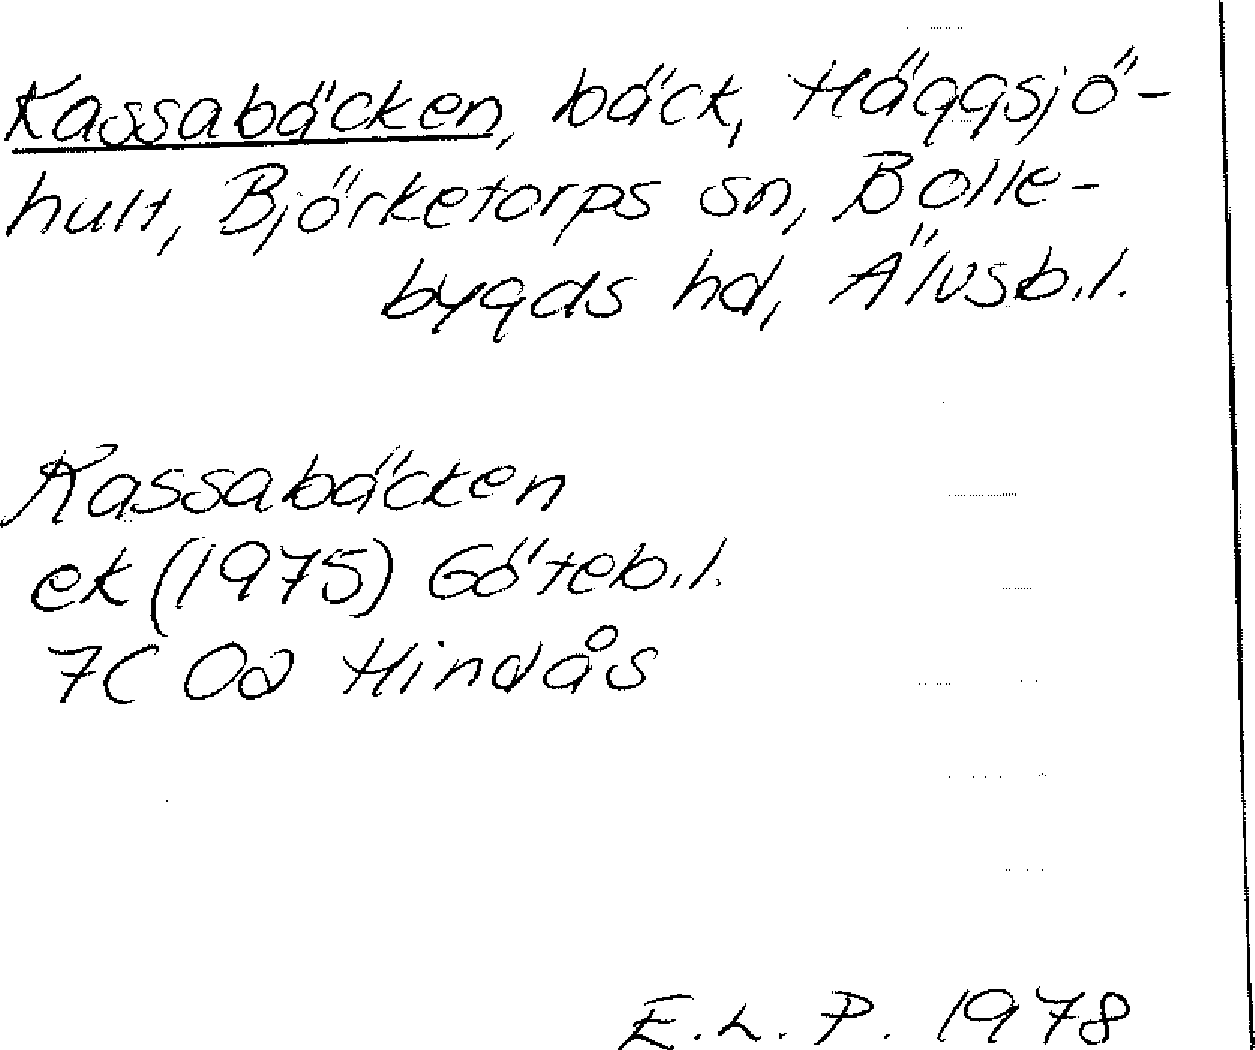 Kassabäcken, bäck, Häggsjö-
hult, Björketorps sn, Bolle-
bygds hd, Älvsb.l.
Kassabäcken
ek (1975) Göteb.l.
7C 0a Hindås
E.L.P. 1978